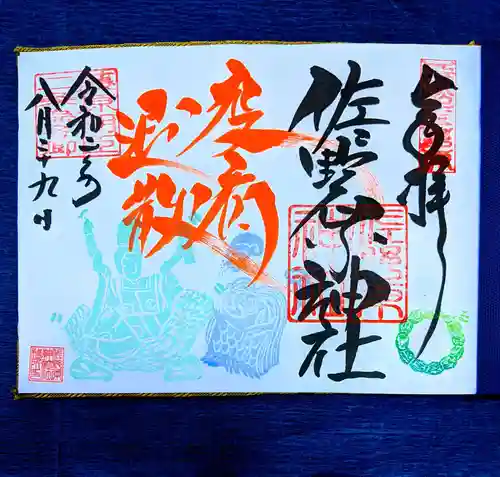 奉拝
佐野原神社
疫病
退散
令和二年
八月二十九日